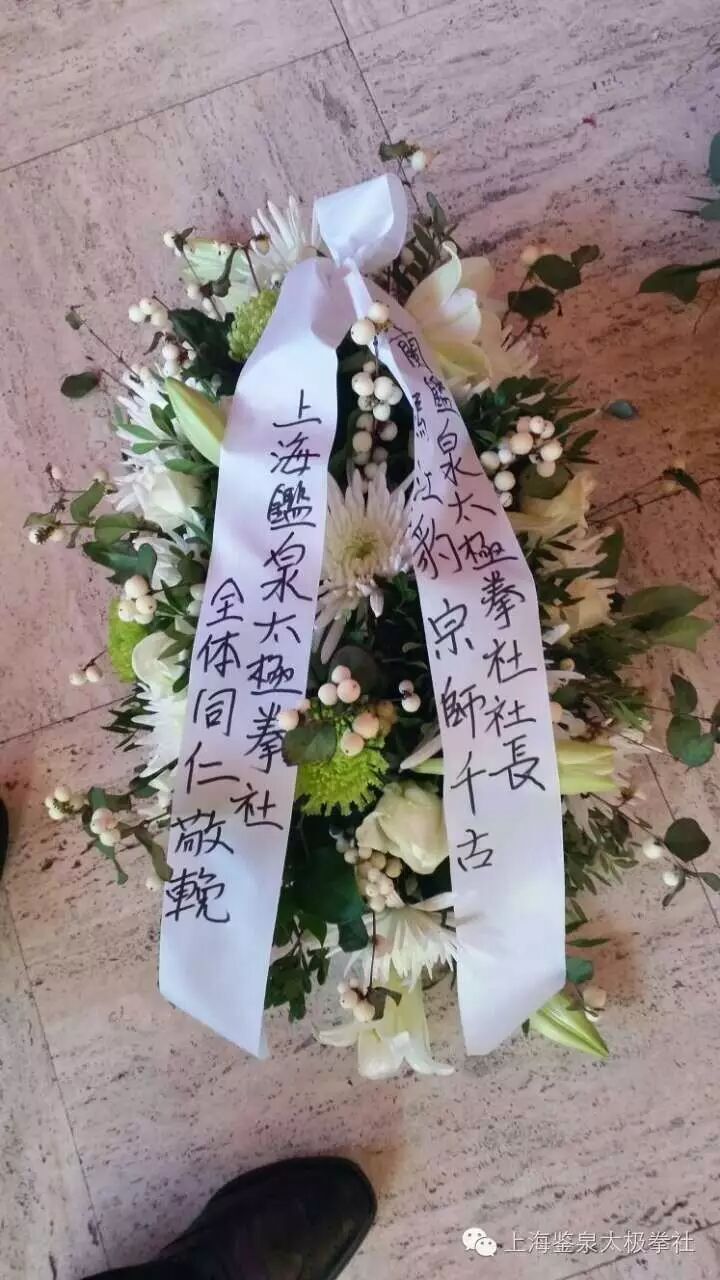 蘭鑑泉太極拳社社長
馬江豹宗師千古
上海鑑泉太極拳社
全体同仁敬輓
上海鉴泉太极拳社